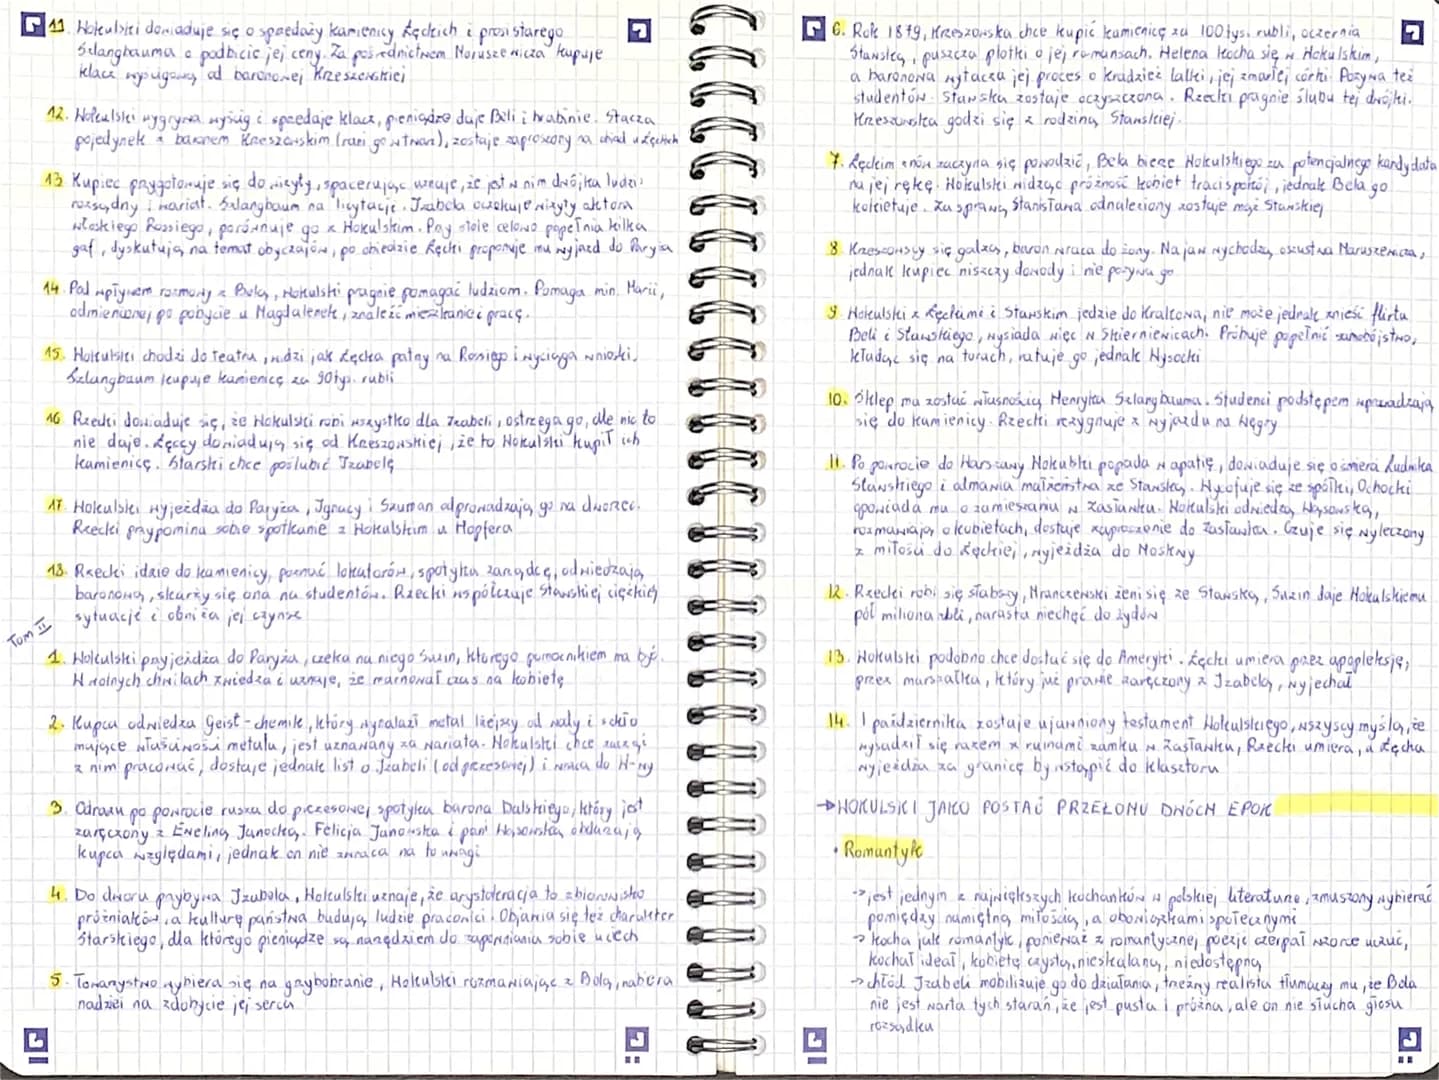 11. Wokulski dowiaduje się o sprzedaży kamienicy Łęckich i prosi starego
Szlangbauma o podbicie jej ceny. Za pośrednictwem Maruszewicza kupuje
klacz wyścigową od baronowej Krzeszowskiej
12. Wokulski wygrywa wyścig i sprzedaje klacz, pieniądze daje Beli i hrabinie. Stacza
pojedynek z baronem Krzeszowskim (rani go w twarz), zostaje zaproszony na obiad u Łęckich
13 Kupiec przygotowuje się do wizyty, spacerując uznaje, że jest w nim dwójka ludzi:
rozsądny i wariat. Szlangbaum na licytację. Izabela oczekuje wizyty aktora
włoskiego Rossiego, porównuje go z Wokulskim. Przy stole celowo popełnia kilka
gaf, dyskutują na temat obyczajów, po obiedzie Łęcki proponuje mu wyjazd do Paryża
14. Pod wpływem rozmowy z Belą, Wokulski pragnie pomagać ludziom. Pomaga min. Marii,
odmienionej po pobycie u Magdalenek, znaleźć mieszkanie i pracę.
15. Wokulski chodzi do teatru, widzi jak Łęcka patrzy na Rossiego i wyciąga wnioski.
Szlangbaum kupuje kamienicę za 90tyś. rubli
16. Rzecki dowiaduje się, że Wokulski robi wszystko dla Izabeli, ostrzega go, ale nic to
nie daje. Łęccy dowiadują się od Krzeszowskiej, że to Wokulski kupił ich
kamienicę. Starski chce poślubić Izabelę
17. Wokulski wyjeżdża do Paryża, Ignacy i Szuman odprowadzają go na dworzec.
Rzecki przypomina sobie spotkanie z Wokulskim u Hopfera
18. Rzecki idzie do kamienicy, poznać lokatorów, spotyka zarządcę, odwiedzają
baronową, skarży się ona na studentów. Rzecki współczuje Stawskiej ciężkiej
sytuacji i obniża jej czynsz
Tom II
1. Wokulski przyjeżdża do Paryża, czeka na niego Suzin, którego pomocnikiem ma być.
W wolnych chwilach zwiedza i uznaje, że marnował czas na kobietę
2. Kupca odwiedza Geist - chemik, który wynalazł metal lżejszy od waty i szkło
mające właściwości metalu, jest uznawany za wariata. Wokulski chce zacząć
z nim pracować, dostaje jednak list o Izabeli (od prezesowej) i wraca do W-wy
3. Odrazu po powrocie rusza do prezesowej, spotyka barona Dalskiego, który jest
zaręczony z Eweliną Janocką. Felicja Janowska i pani Wąsowska obdarzają
kupca względami, jednak on nie zwraca na to uwagi
4. Do dworu przybywa Izabela, Wokulski uznaje, że arystokracja to zbiorowisko
próżniaków, a kulturę państwa budują ludzie pracowici. Objawia się też charakter
Starskiego, dla którego pieniądze są narzędziem do zapewniania sobie uciech
5. Towarzystwo wybiera się na grzybobranie, Wokulski rozmawiając z Belą, nabiera
nadziei na zdobycie jej serca
6. Rok 1879, Krzeszowska chce kupić kamienicę za 100tyś. rubli, oczernia
Stawską, puszcza plotki o jej romansach. Helena kocha się w Wokulskim,
a baronowa wytacza jej proces o kradzież lalki, jej zmarłej córki. Pozywa też
studentów. Stawska zostaje oczyszczona. Rzecki pragnie ślubu tej dwójki.
Krzeszowska godzi się z rodziną Stawskiej.
7. Łęckim znów zaczyna się powodzić, Bela bierze Wokulskiego za potencjalnego kandydata
na jej rękę. Wokulski widząc próżność kobiet traci spokój, jednak Bela go
kokietuje. Za sprawą Stanisława odnaleziony zostaje mąż Stawskiej
8 Krzeszowscy się godzą, baron wraca do żony. Na jaw wychodzą oszustwa Maruszewicza,
jednak kupiec niszczy dowody i nie pozywa go
9. Wokulski z Łęckimi i Starskim jedzie do Krakowa, nie może jednak znieść flirtu
Beli i Stawskiego, wysiada więc w Skierniewicach. Próbuje popełnić samobójstwo,
kładąc się na torach, ratuje go jednak Wysocki
10. Sklep ma zostać własnością Henryka Szlangbauma. Studenci podstępem wprowadzają
się do kamienicy. Rzecki rezygnuje z wyjazdu na Węgry
11. Po powrocie do Warszawy Wokulski popada w apatię, dowiaduje się o śmierci Ludwika
Stawskiego i odmawia małżeństwa ze Stawską. Wycofuje się ze spółki, Ochocki
opowiada mu o zamieszaniu w Zasławku. Wokulski odwiedza Wąsowską,
rozmawiają o kobietach, dostaje zaproszenie do Zasławka. Czuje się wyleczony
z miłości do Łęckiej, wyjeżdża do Moskwy
12. Rzecki robi się słabszy, Mraczewski żeni się ze Stawską, Suzin daje Wokulskiemu
pół miliona rubli, narasta niechęć do żydów
13. Wokulski podobno chce dostać się do Ameryki. Łęcki umiera przez apopleksję,
przez marszałka, który już prawie zaręczony z Izabelą, wyjechał
14. 1 października zostaje ujawniony testament Wokulskiego, wszyscy myślą, że
wysadził się razem z ruinami zamku w Zasławku, Rzecki umiera, a Łęcka
wyjeżdża za granicę by wstąpić do klasztoru
→ WOKULSKI JAKO POSTAĆ PRZEŁOMU DWÓCH EPOK
• Romantyk
→ jest jednym z największych kochanków w polskiej literaturze, zmuszony wybierać
pomiędzy namiętną miłością, a obowiązkami społecznymi
→ kocha jak romantyk, ponieważ z romantycznej poezji czerpał wzorce uczuć,
kochał ideał, kobietę czystą, nieskalaną, niedostępną
→ chłód Izabeli mobilizuje go do działania, trzeźwy realista tłumaczy mu, że Bela
nie jest warta tych starań, że jest pusta i próżna, ale on nie słucha głosu
rozsądku